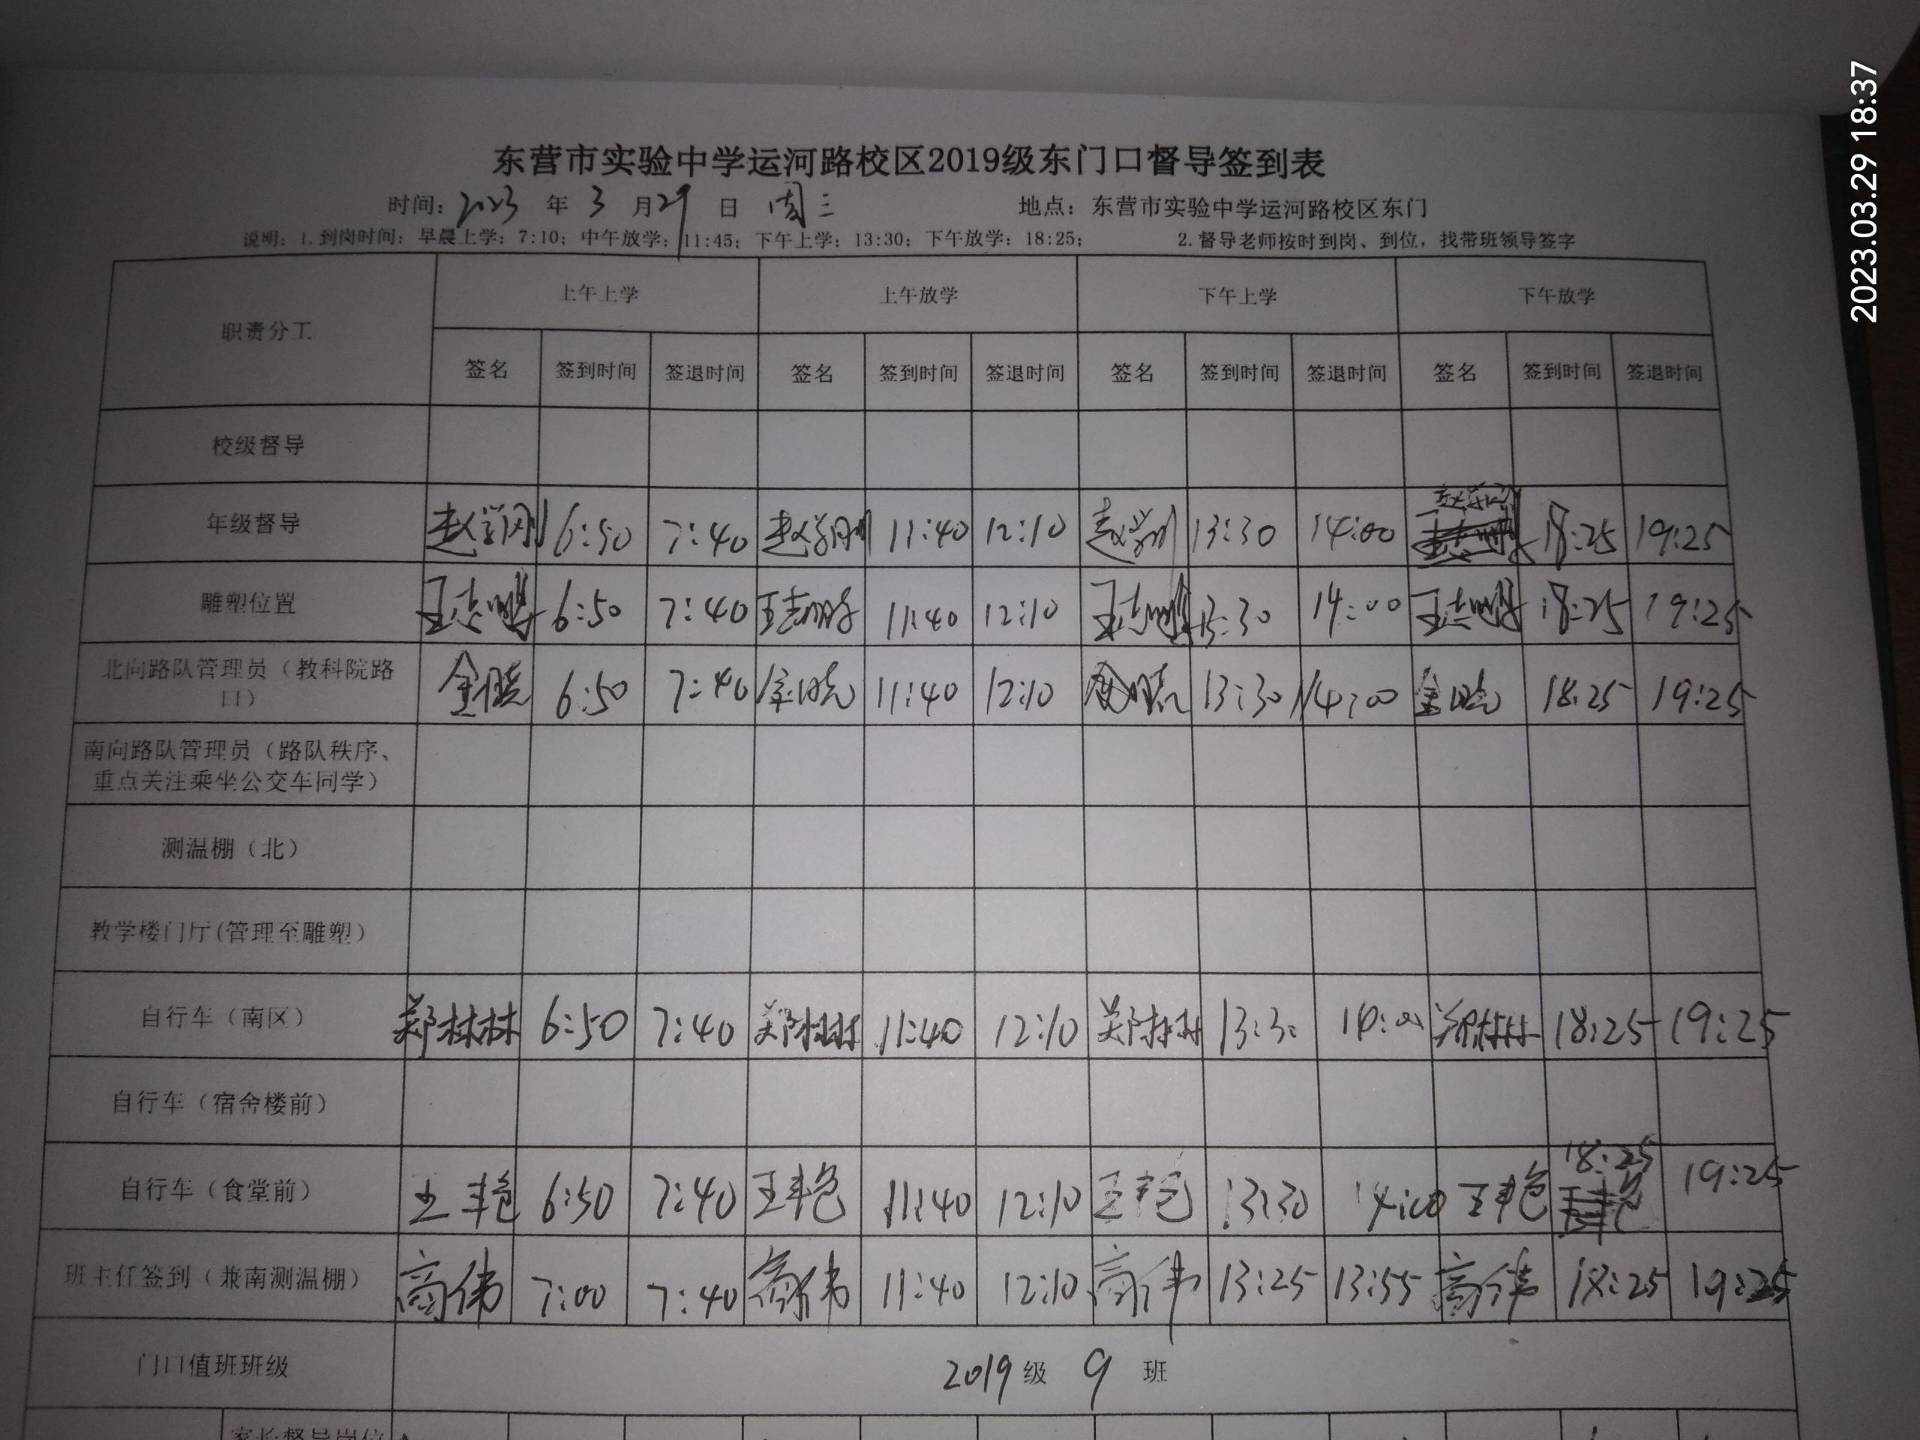 2023.03.29 18:37
东营市实验中学运河路校区2019级东门口督导签到表
时间：2023 年 3 月 29 日 周三 地点：东营市实验中学运河路校区东门
说明：1.到岗时间：早晨上学：7:10；中午放学：11:45；下午上学：13:30；下午放学：18:25； 2.督导老师按时到岗、到位，找带班领导签字
职责分工 上午上学 上午放学 下午上学 下午放学
签名 签到时间 签退时间 签名 签到时间 签退时间 签名 签到时间 签退时间 签名 签到时间 签退时间
校级督导
年级督导 赵学刚 6:50 7:40 赵学刚 11:40 12:10 赵学刚 13:30 14:00 赵学刚 18:25 19:25
雕塑位置 王志鹏 6:50 7:40 王志鹏 11:40 12:10 王志鹏 13:30 14:00 王志鹏 18:25 19:25
北向路队管理员（教科院路
口） 金晓 6:50 7:40 金晓 11:40 12:10 金晓 13:30 14:00 金晓 18:25 19:25
南向路队管理员（路队秩序、
重点关注乘坐公交车同学）
测温棚（北）
教学楼门厅(管理至雕塑）
自行车（南区） 郑林林 6:50 7:40 郑林林 11:40 12:10 郑林林 13:30 14:00 郑林林 18:25 19:25
自行车（宿舍楼前）
自行车（食堂前） 王丰色 6:50 7:40 王丰色 11:40 12:10 王丰色 13:30 14:00 王丰色 18:25 19:25
班主任签到（兼南测温棚） 高伟 7:00 7:40 高伟 11:40 12:10 高伟 13:25 13:55 高伟 18:25 19:25
门口值班班级 2019 级 9 班
家长督导岗位